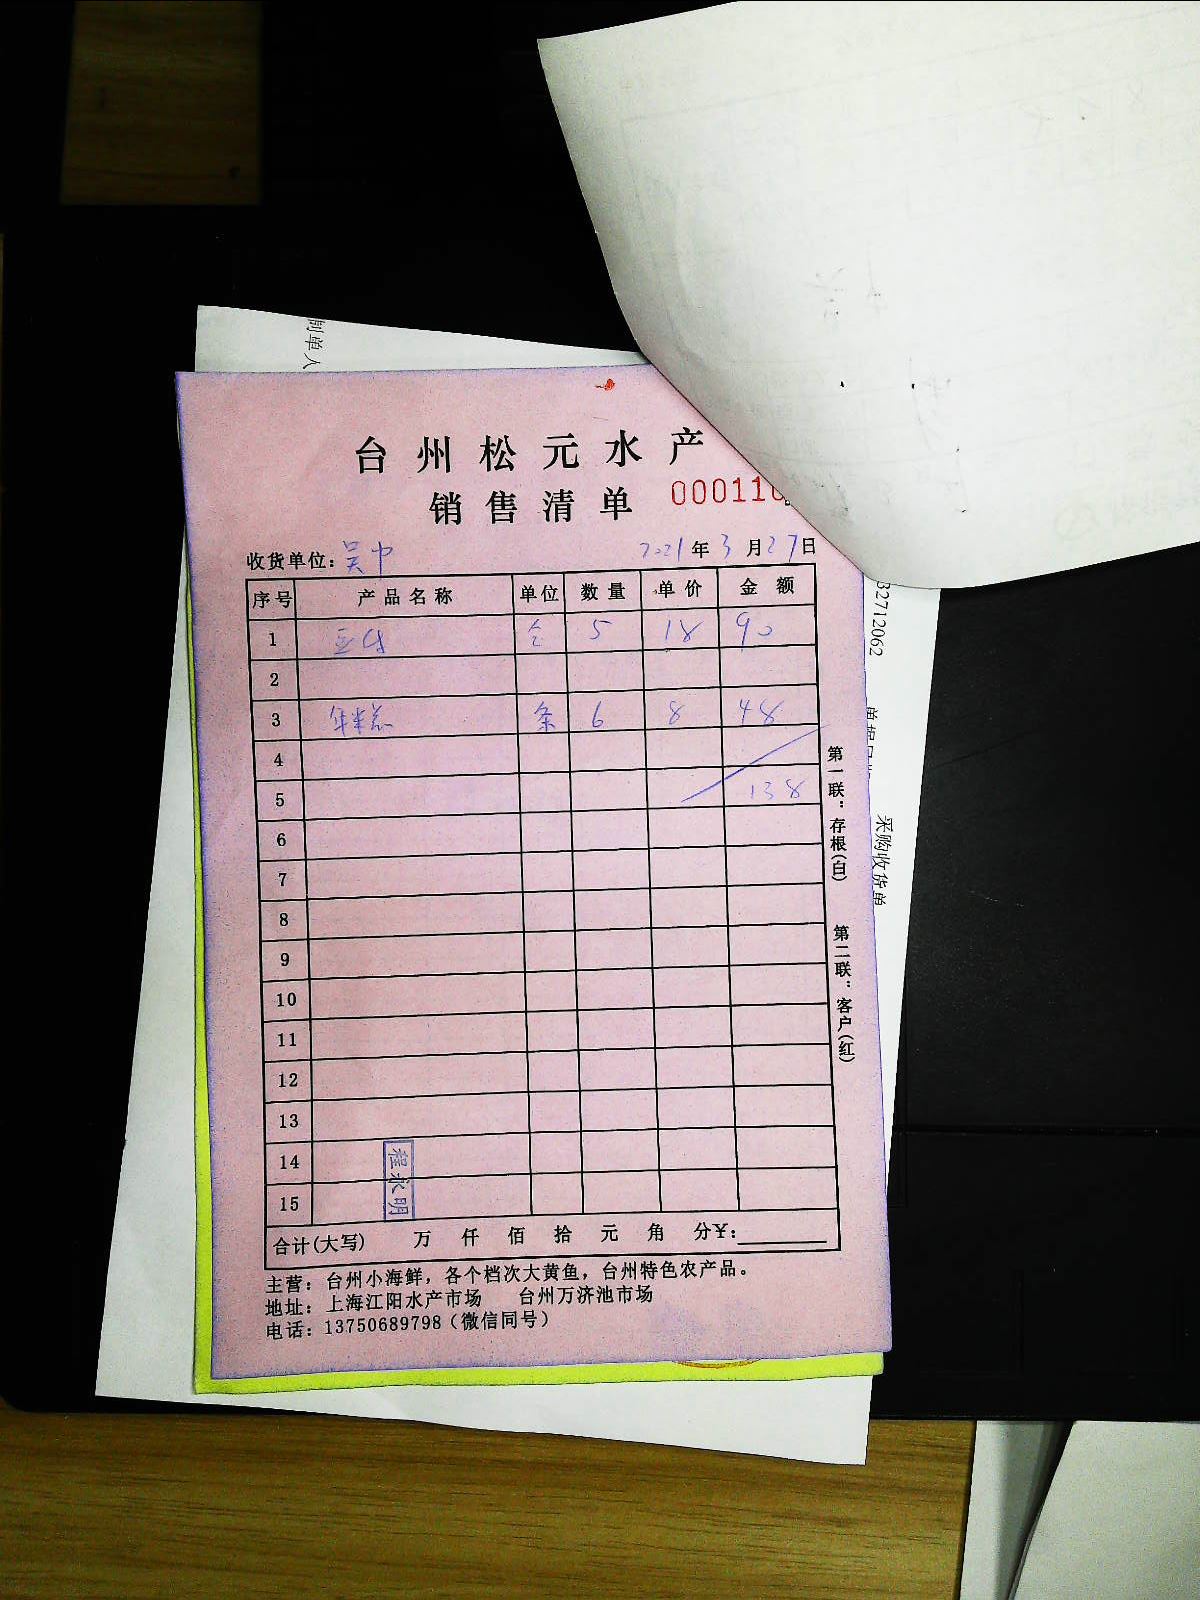 制单人
台州松元水产
销售清单 000110
收货单位：吴中 2021年3月27日
序号 产品名称 单位 数量 单价 金额
1 5 18 90
2
3 年糕 条 6 8 48
4
5 138
6
7
8
9
10
11
12
13
14
15
程永明
合计(大写) 万 仟 佰 拾 元 角 分¥：
主营：台州小海鲜，各个档次大黄鱼，台州特色农产品。
地址：上海江阳水产市场 台州万济池市场
电话：13750689798（微信同号）
第一联：存根(白) 第二联：客户(红)
32712062
采购收货单